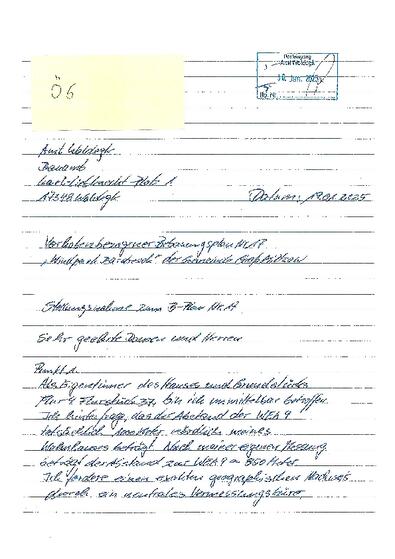 Ö6
Posteingang
Amt Woldegk
Amt Woldegk
Bauamt
Karl-Liebknecht-Platz 1
17348 Woldegk
Datum: 19.01.2025
Vorhabenbezogener Bebauungsplan Nr. 17
der Gemeinde Groß Miltzow
Stellungnahme zum B-Plan Nr. 17
Sehr geehrte Damen und Herren
Punkt 1.
Als Eigentümer des Hauses und Grundstücks
Flur 4 Flurstück 37, bin ich unmittelbar betroffen.
Ich hinterfrage, das der Abstand der WEA 9
tatsächlich 1000 Meter nördlich meines
Wohnhauses beträgt. Nach meiner eigenen Messung
beträgt der Abstand zur WEA 9 = 850 Meter
Ich fordere einen exakten geographischen Nachweis
durch ein neutrales Vermessungsbüro.